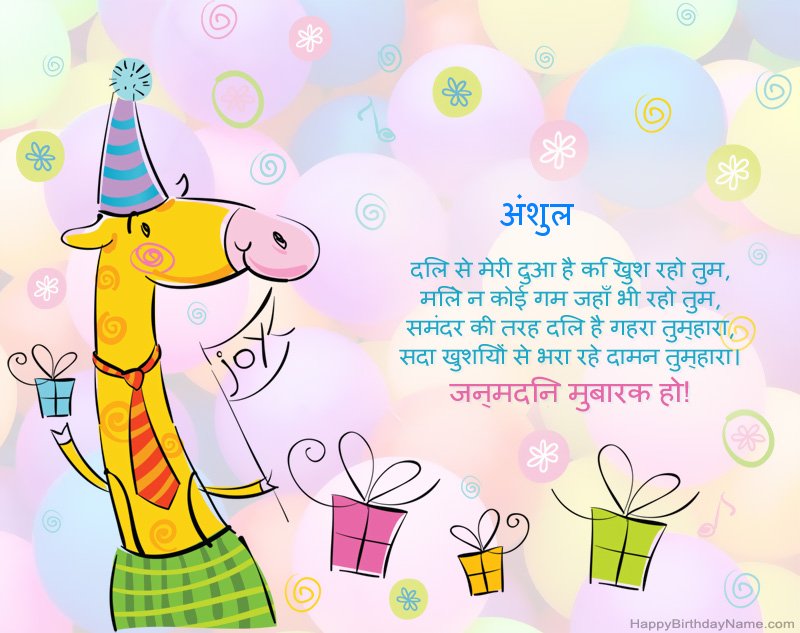 अंशुल
दिल से मेरी दुआ है कि खुश रहो तुम,
मिले न कोई गम जहाँ भी रहो तुम,
समंदर की तरह दिल है गहरा तुम्हारा,
सदा खुशियों से भरा रहे दामन तुम्हारा।
जन्मदिन मुबारक हो!
joy
HappyBirthdayName.com